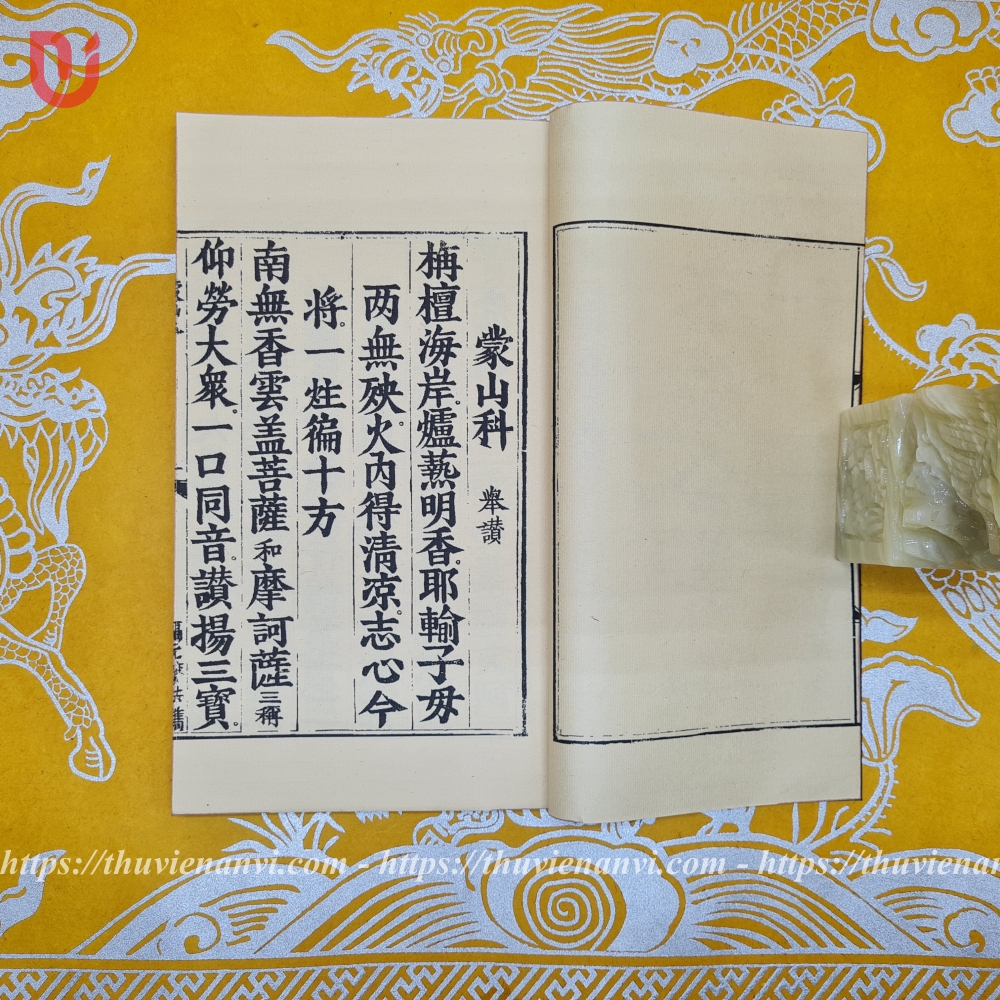 蒙山科 舉讃
栴檀海岸。爐爇明香。耶輸子毋
两無殃。火内得清凉。志心今
将。一炷徧十方
南無香雲盖菩薩和摩訶薩三稱
仰勞大衆。一口同音。讃揚三寳。
https://thuvienanvi.com - https://thuvienanvi.com - https://thuvienan